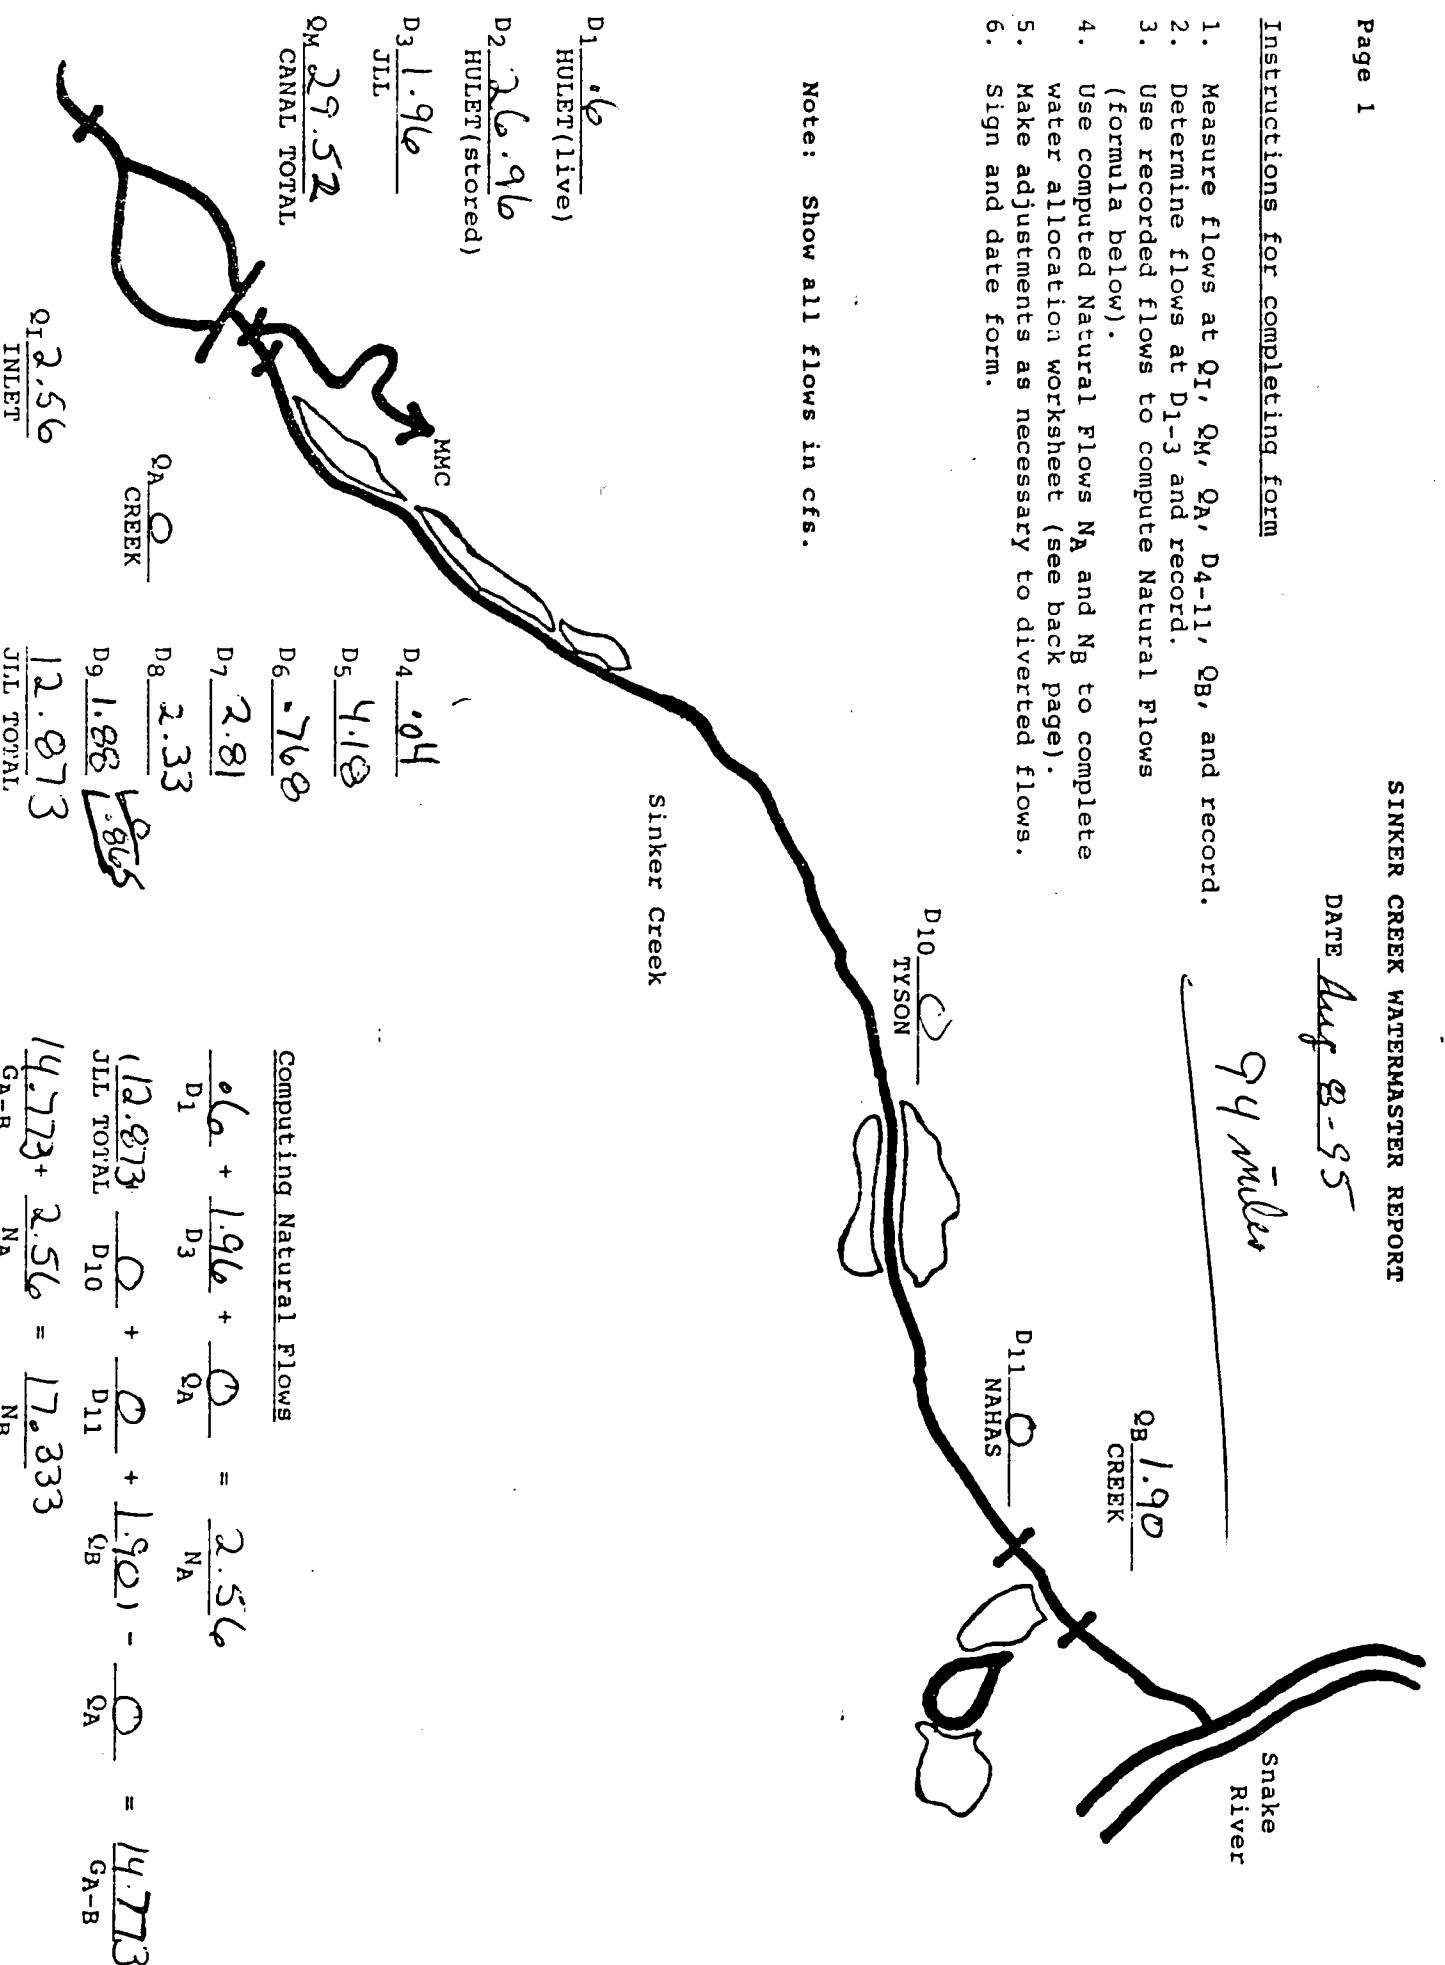 Page 1
SINKER CREEK WATERMASTER REPORT
DATE Aug 8-95
94 miles
Instructions for completing form
1. Measure flows at QI, QM, QA, D4-11, QB, and record.
2. Determine flows at D1-3 and record.
3. Use recorded flows to compute Natural Flows
(formula below).
4. Use computed Natural Flows NA and NB to complete
water allocation worksheet (see back page).
5. Make adjustments as necessary to diverted flows.
6. Sign and date form.
Note: Show all flows in cfs.
QB 1.90
CREEK
Snake
River
D11 0
NAHAS
D10 0
TYSON
Sinker Creek
D1 .6
HULET(live)
D2 26.96
HULET(stored)
D3 1.96
JLL
QM 29.52
CANAL TOTAL
MMC
QI 2.56
INLET
QA 0
CREEK
D4 .04
D5 4.18
D6 .768
D7 2.81
D8 2.33
D9 1.88 .865
12.873
JLL TOTAL
Computing Natural Flows
.6 + 1.96 + 0 = 2.56
D1 D3 QA NA
(12.873+ 0 + 0 + 1.90) - 0 = 14.773
JLL TOTAL D10 D11 QB QA GA-B
14.773+ 2.56 = 17.333
GA-B NA NB